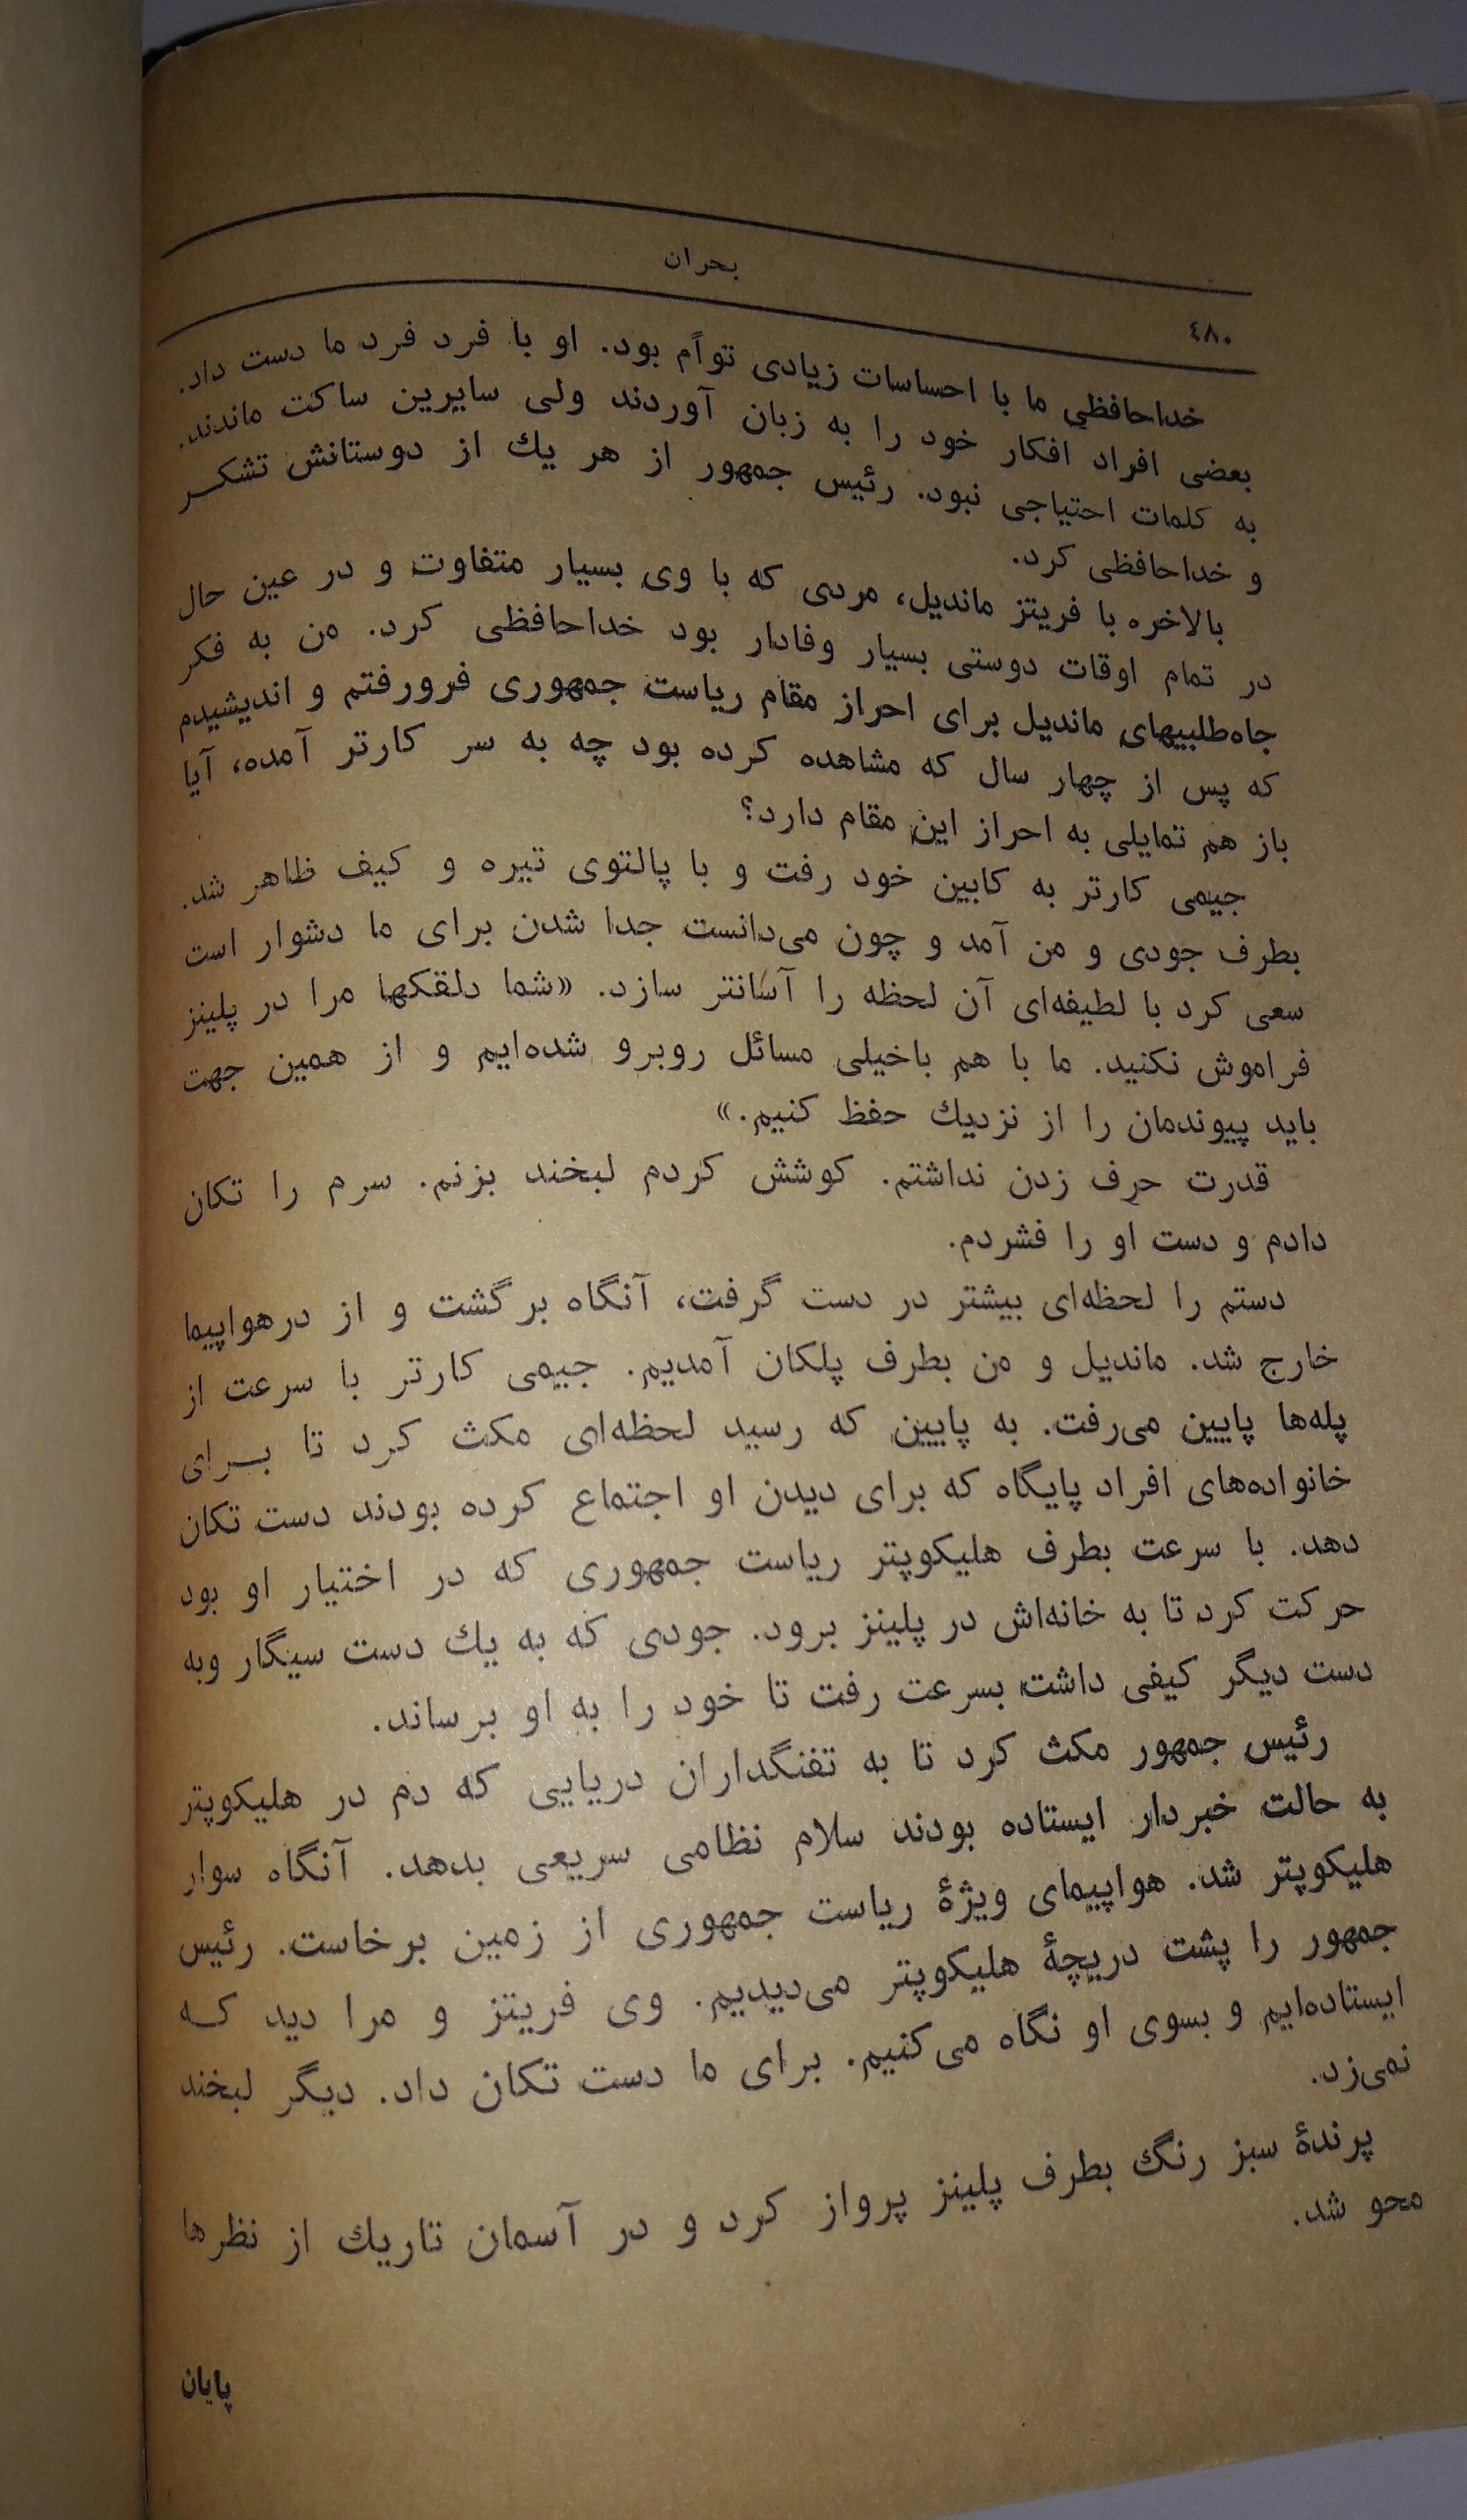 بحران
٤٨٠
خداحافظی ما با احساسات زیادی توأم بود. او با فرد فرد ما دست داد.
بعضی افراد افکار خود را به زبان آوردند ولی سایرین ساکت ماندند.
به کلمات احتیاجی نبود. رئیس جمهور از هر یك از دوستانش تشکـر
و خداحافظی کرد.
بالاخره با فریتز ماندیل، مردی که با وی بسیار متفاوت و در عین حال
در تمام اوقات دوستی بسیار وفادار بود خداحافظی کرد. من به فکر
جاه‌طلبیهای ماندیل برای احراز مقام ریاست جمهوری فرورفتم و اندیشیدم
که پس از چهار سال که مشاهده کرده بود چه به سر کارتر آمده، آیا
باز هم تمایلی به احراز این مقام دارد؟
جیمی کارتر به کابین خود رفت و با پالتوی تیره و کیف ظاهر شد.
بطرف جودی و من آمد و چون می‌دانست جدا شدن برای ما دشوار است
سعی کرد با لطیفه‌ای آن لحظه را آسانتر سازد. «شما دلقکها مرا در پلینز
فراموش نکنید. ما با هم باخیلی مسائل روبرو شده‌ایم و از همین جهت
باید پیوندمان را از نزدیك حفظ کنیم.»
قدرت حرف زدن نداشتم. کوشش کردم لبخند بزنم. سرم را تکان
دادم و دست او را فشردم.
دستم را لحظه‌ای بیشتر در دست گرفت، آنگاه برگشت و از درهواپیما
خارج شد. ماندیل و من بطرف پلکان آمدیم. جیمی کارتر با سرعت از
پله‌ها پایین می‌رفت. به پایین که رسید لحظه‌ای مکث کرد تا بـرای
خانواده‌های افراد پایگاه که برای دیدن او اجتماع کرده بودند دست تکان
دهد. با سرعت بطرف هلیکوپتر ریاست جمهوری که در اختیار او بود
حرکت کرد تا به خانه‌اش در پلینز برود. جودی که به یك دست سیگار وبه
دست دیگر کیفی داشت بسرعت رفت تا خود را به او برساند.
رئیس جمهور مکث کرد تا به تفنگداران دریایی که دم در هلیکوپتر
به حالت خبردار ایستاده بودند سلام نظامی سریعی بدهد. آنگاه سوار
هلیکوپتر شد. هواپیمای ویژهٔ ریاست جمهوری از زمین برخاست. رئیس
جمهور را پشت دریچهٔ هلیکوپتر می‌دیدیم. وی فریتز و مرا دید کـه
ایستاده‌ایم و بسوی او نگاه می‌کنیم. برای ما دست تکان داد. دیگر لبخند
نمی‌زد.
پرندهٔ سبز رنگ بطرف پلینز پرواز کرد و در آسمان تاریك از نظرها
محو شد.
پایان